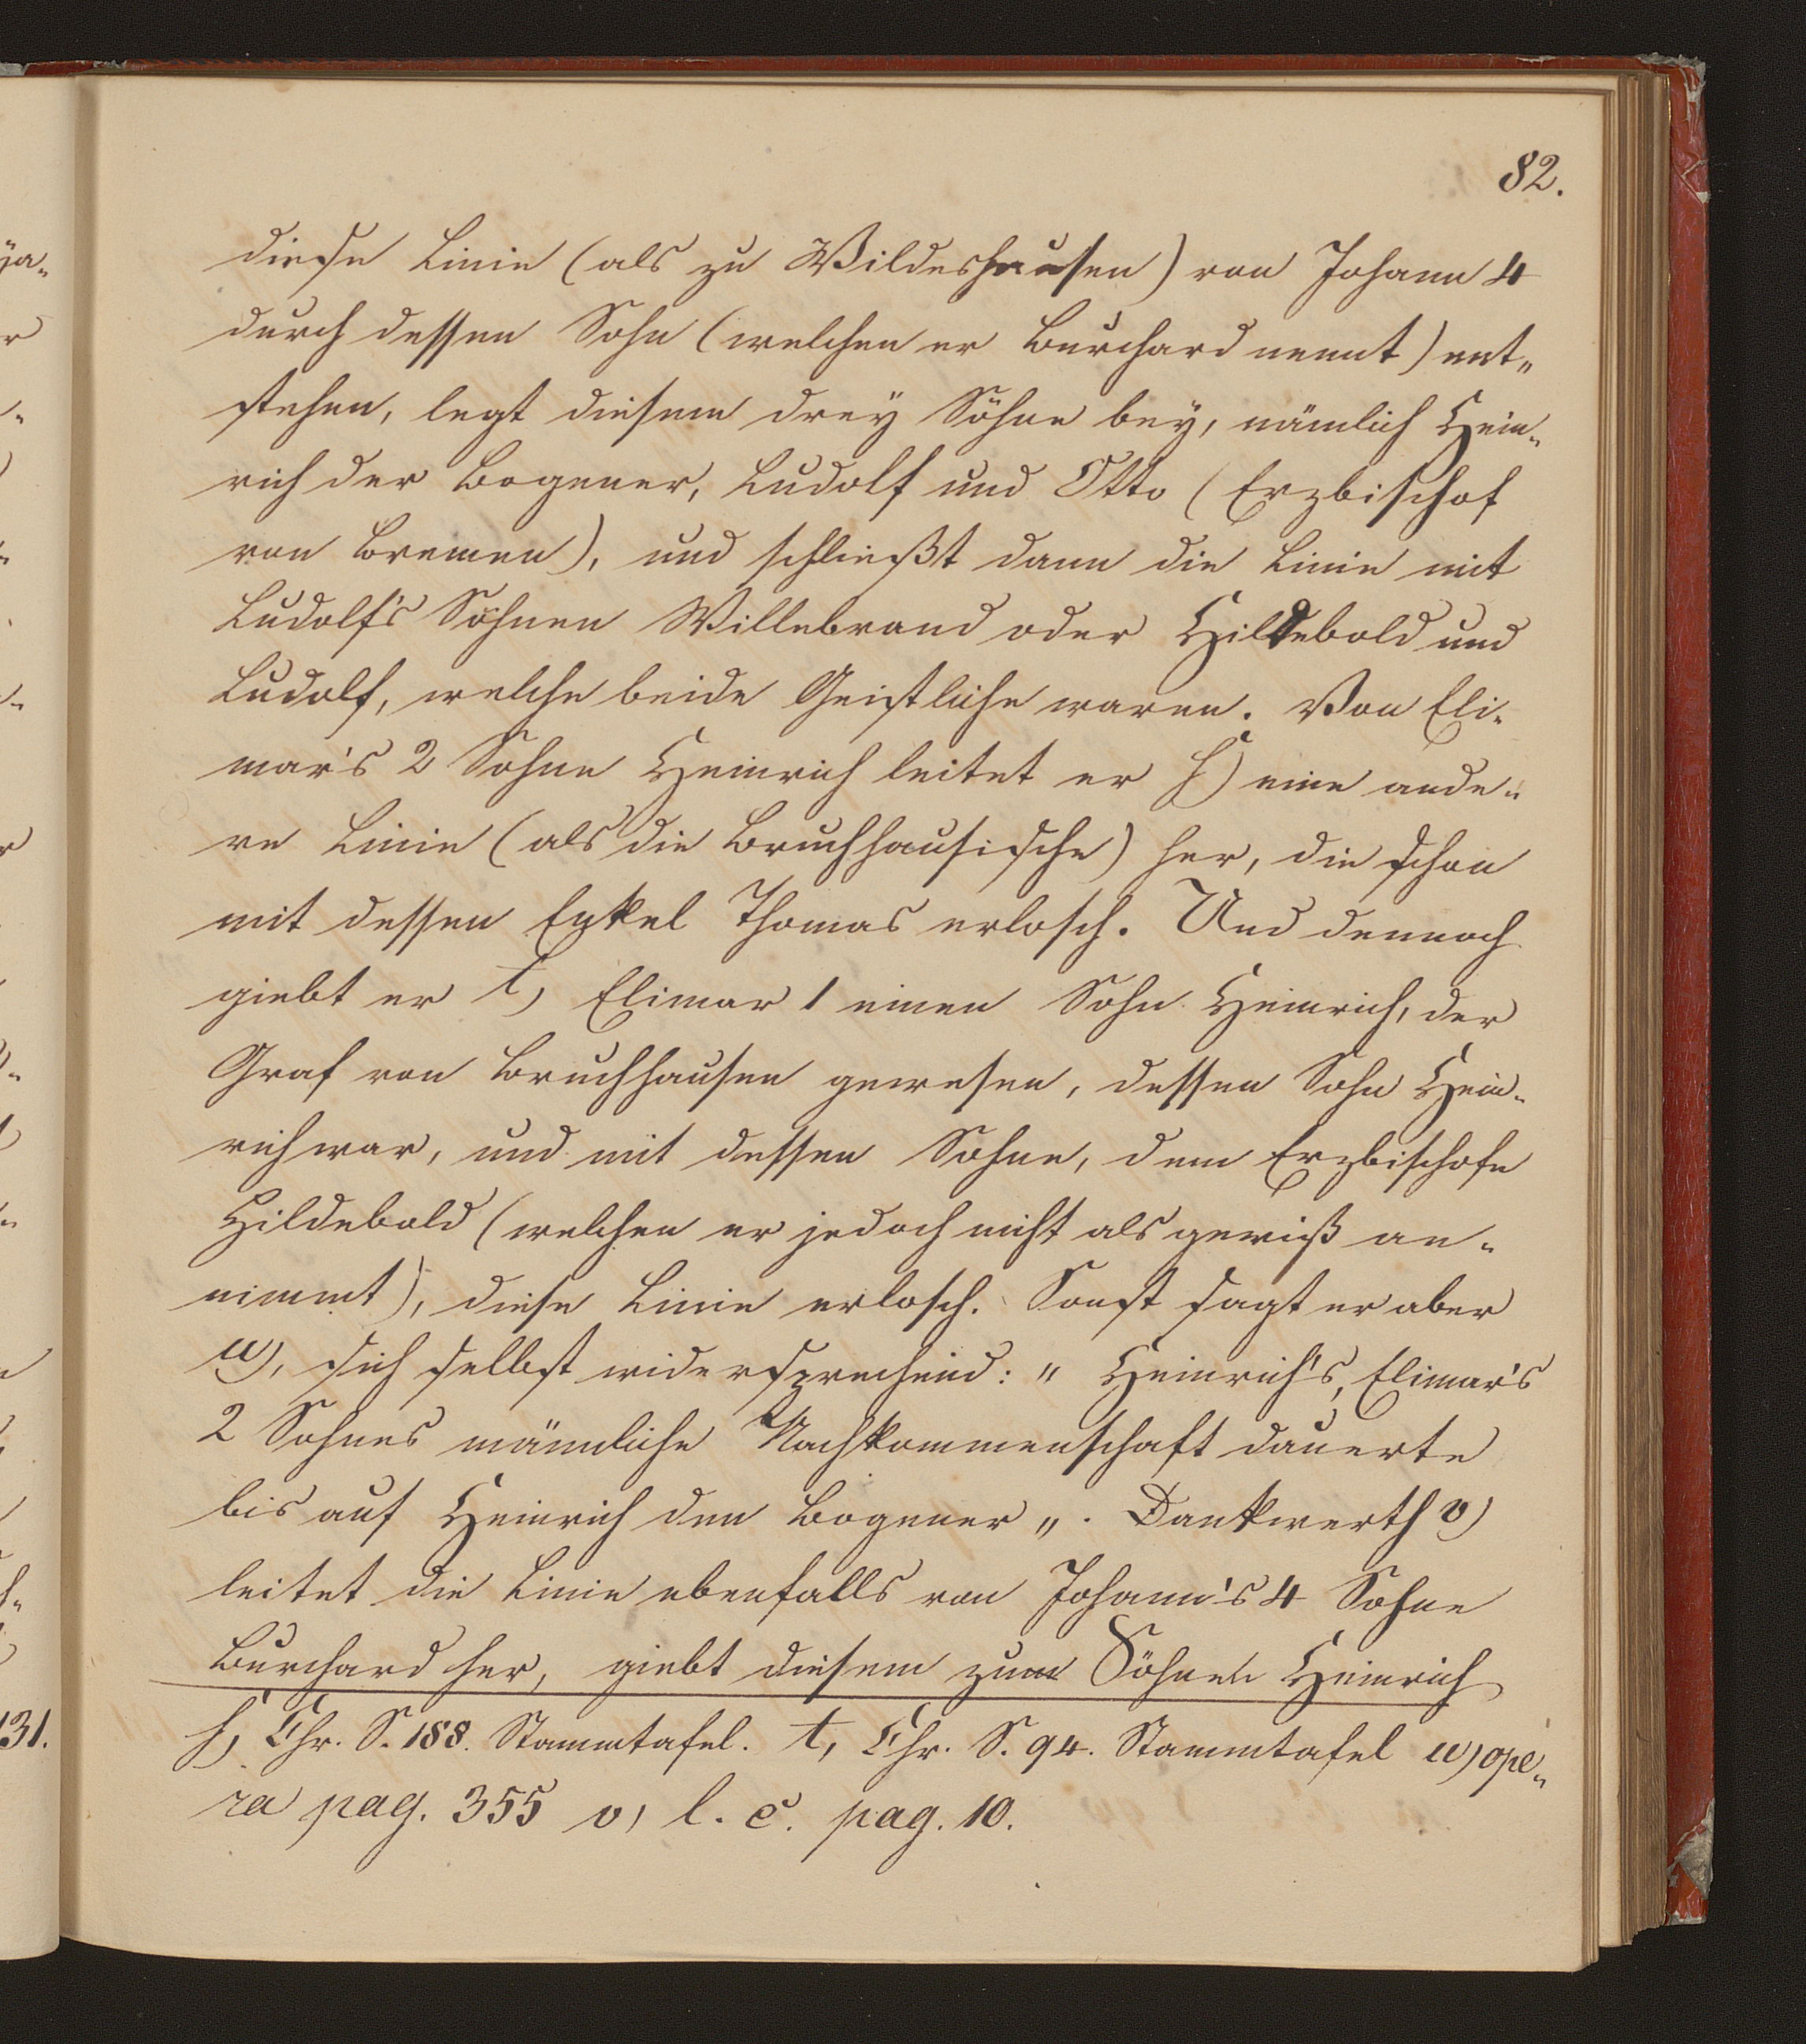 82.
diese Linie (als zu Wildeshausen) von Johann 4
durch dessen Sohn (welchen er Burchard nennt) ent„
stehen, legt diesem drey Söhne bey, nämlich Hein„
rich der Bogener, Ludolf und Otto (Erzbischof
von Bremen), und schließt dann die Linie mit
Ludolf's Söhnen Willebrand oder Hildebold und
Ludolf, welche beide Geistliche waren. Von Eli„
mar's 2 Sohne Heinrich leitet er s) eine ande„
re Linie (als die Bruchhausische) her, die schon
mit dessen Enkel Thomas erlosch. Und dennoch
giebt er t) Elimar 1 einen Sohn Heinrich, der
Graf von Bruchhausen gewesen, dessen Sohn Hein„
rich war, und mit dessen Sohne, dem Erzbischofe
Hildebold (welchen er jedoch nicht als gewiß an„
nimmt), diese Linie erlosch. Sonst sagt er aber
u), sich selbst widersprechend: „ Heinrich's, Elimar's
2 Sohnes männliche Nachkommenschaft dauerte
bis auf Heinrich den Bogener „. Dankwerth v)
leitet die Linie ebenfalls von Johann's 4 Sohne
Burchard her, giebt diesem zum Söhnen Heinrich
s) Chr. S. 188. Stammtafel. t, Chr. S. 94. Stammtafel u) ope„
ra pag. 355 v) l. c. pag. 10.
131.